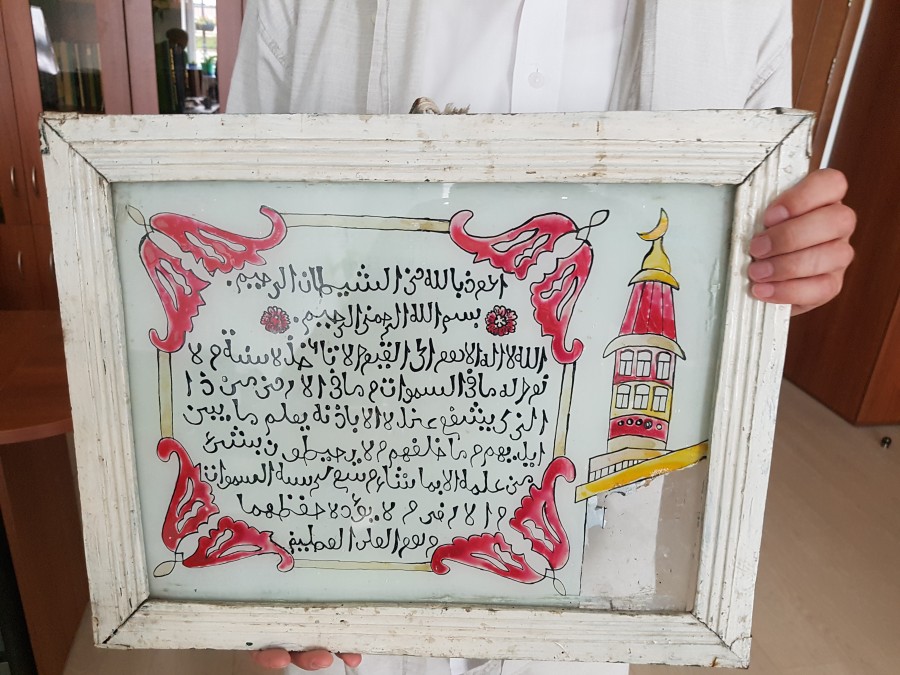 اعوذ بالله من الشيطان الرجيم.
بسم الله الرحمن الرحيم.
الله لا اله الا هو الحى القيوم لا تأخذه سنة و لا
نوم له ما فى السموات و ما فى الارض من ذا
الذى يشفع عنده الا باذنه يعلم ما بين
ايديهم و ما خلفهم و لا يحيطون بشئ
من علمه الا بما شاء وسع كرسيه السموات
و الارض و لا يؤده حفظهما
وهو العلى العظيم